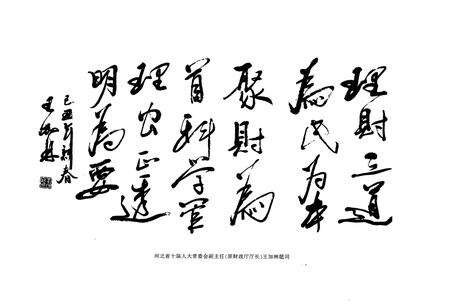 理財之道
為民为本
聚財為
首科学管
理公正透
明為要
己丑年新春
王加林
河北省十届人大常委会副主任(原财政厅厅长)王加林题词